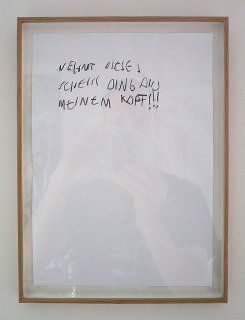 NEHMT DIESES
SCHEISS DING AUS
MEINEM KOPF!!!